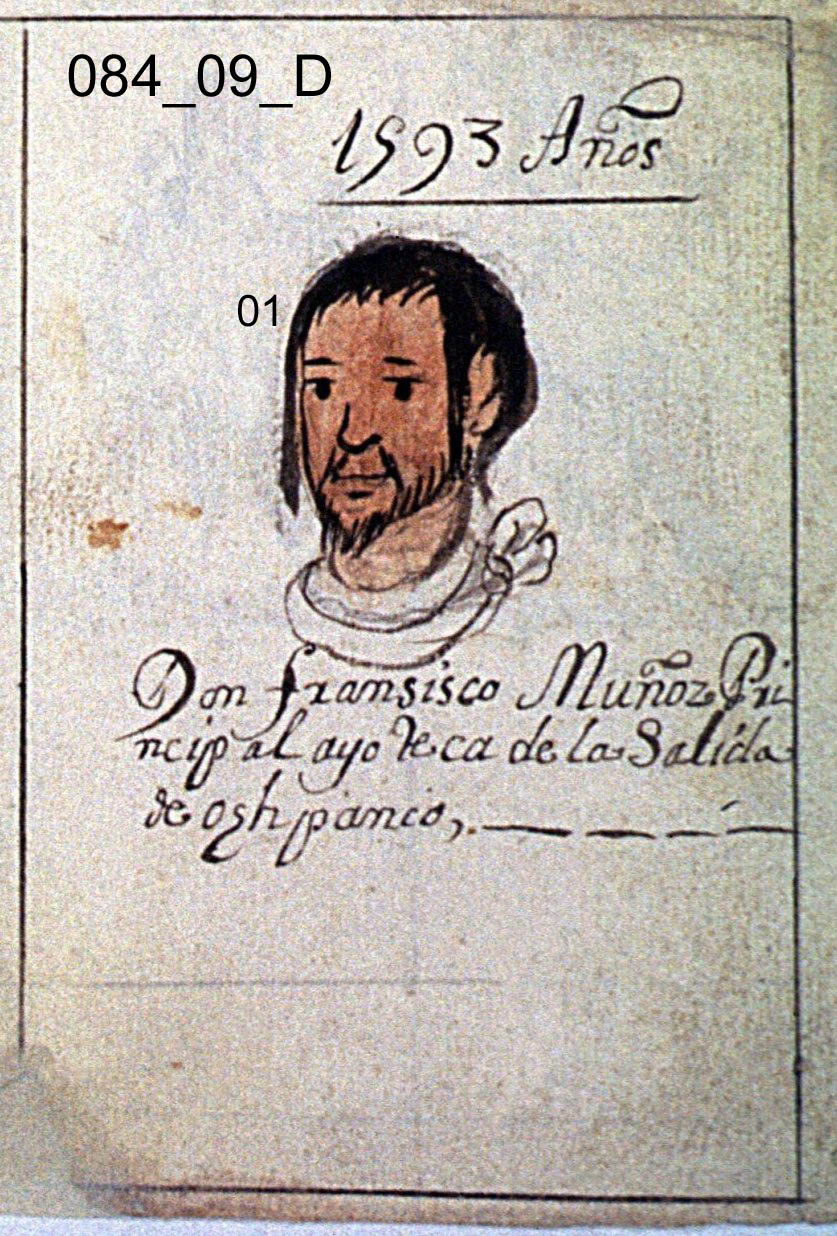 084_09_D
1593 Años
01
Don fransisco Muñoz Pri
ncipal ayoteca de la Salida
de oshpanco,.